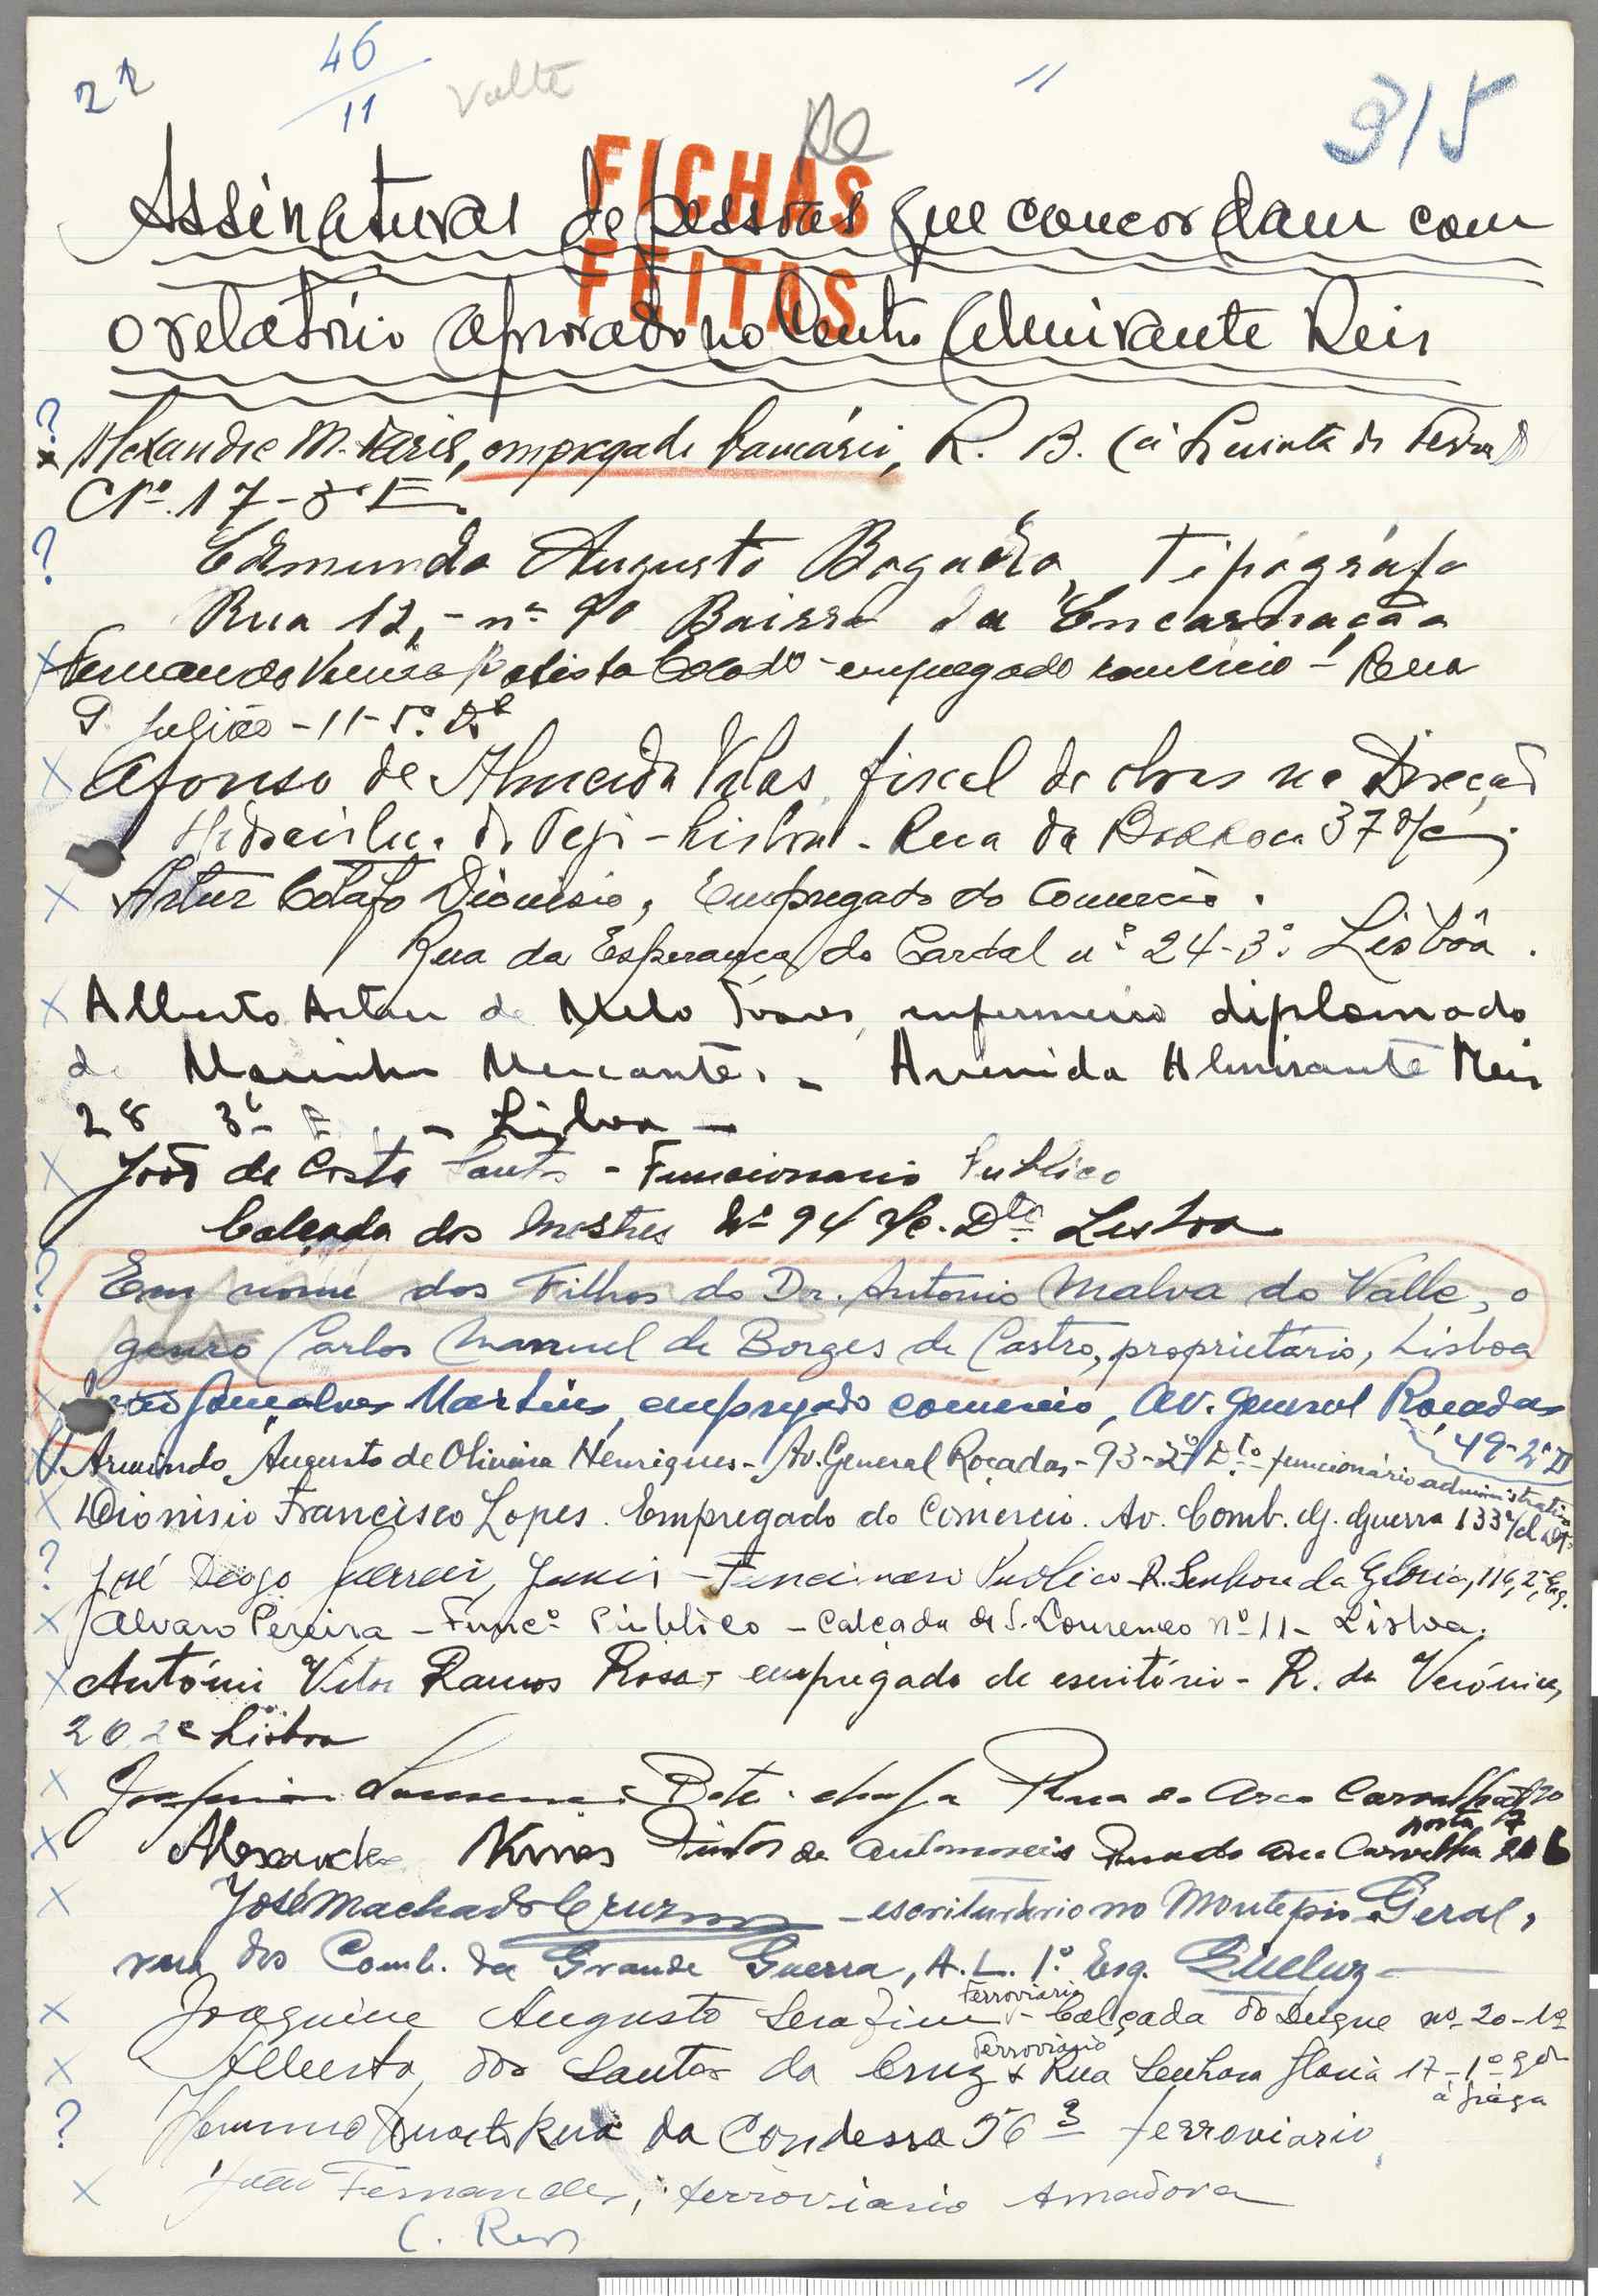 22
46
11
Volte
11
315
FICHAS
FEITAS
Assinaturas de pessoas que concordam com
o relatório aprovado no Centro Almirante Reis
? x Alexandre M. Reis, empregado bancário, R. B. (à Quinta do
Nº. 17-3º E.
? Edmundo Augusto Tipógrafo
Rua 12, - nº 90 Bairro da Encarnação
x Fernando empregado comércio - Rua
S. Julião - 11 - 5º. Dº
x Afonso de Almeida Vilas, fiscal de obras na Direcção
Hidráulica do Tejo - Lisboa - Rua da 37 r/c
x Artur Dionisio, Empregado do Comercio.
Rua da Esperança do Cardal nº 24-3º Lisbôa.
x Alberto Artur de Melo enfermeiro diplomado
da Marinha Mercante. - Avenida Almirante Reis
28 3º E. - Lisboa -
x João da Costa Santos - Funcionario Publico
Calçada dos Mestres Nº 94 r/c. Dto Lisboa
? Em nome dos Filhos do Dr. Antonio Malva do Valle, o
genro Carlos Manuel de Borges de Castro, proprietário, Lisboa
x Gonçalves Martins, empregado comercio, Av. General Roçadas
49-2º D
x Armindo Augusto de Oliveira Henriques - Av. General Roçadas - 93-2º Dto - funcionário administrativo
x Dionisio Francisco Lopes. Empregado do Comercio. Av. Comb. G. Guerra 133 r/c Dt.
? José Diogo Junior - Funcionario Publico - R. Senhora da Glória, 116, 2º, Esq.
x Alvaro Pereira - Funcº Público - Calçada de S. Lourenço nº 11 - Lisboa.
x António Vitor Ramos Rosa - empregado de escritório - R. da Verónica,
20 2º Lisboa
x Rua do Arco Carvalhão
porta 7
x Alexandre Nunes Pintor de automoveis Rua do Arco Carvalhão
x José Machado Cruz - escriturário no Montepio Geral,
rua dos Comb. da Grande Guerra, A. L. 1º. Esq. Queluz -
Ferroviario
x Joaquim Augusto Serafim - Calçada do Duque nº 20-1º
Ferroviário
x Alberto dos Santos da Cruz x Rua Senhora Gloria 17-1º
à Graça
? Duarte Rua da Condessa 56 3 ferroviario
x João Fernandes, ferroviario Amadora